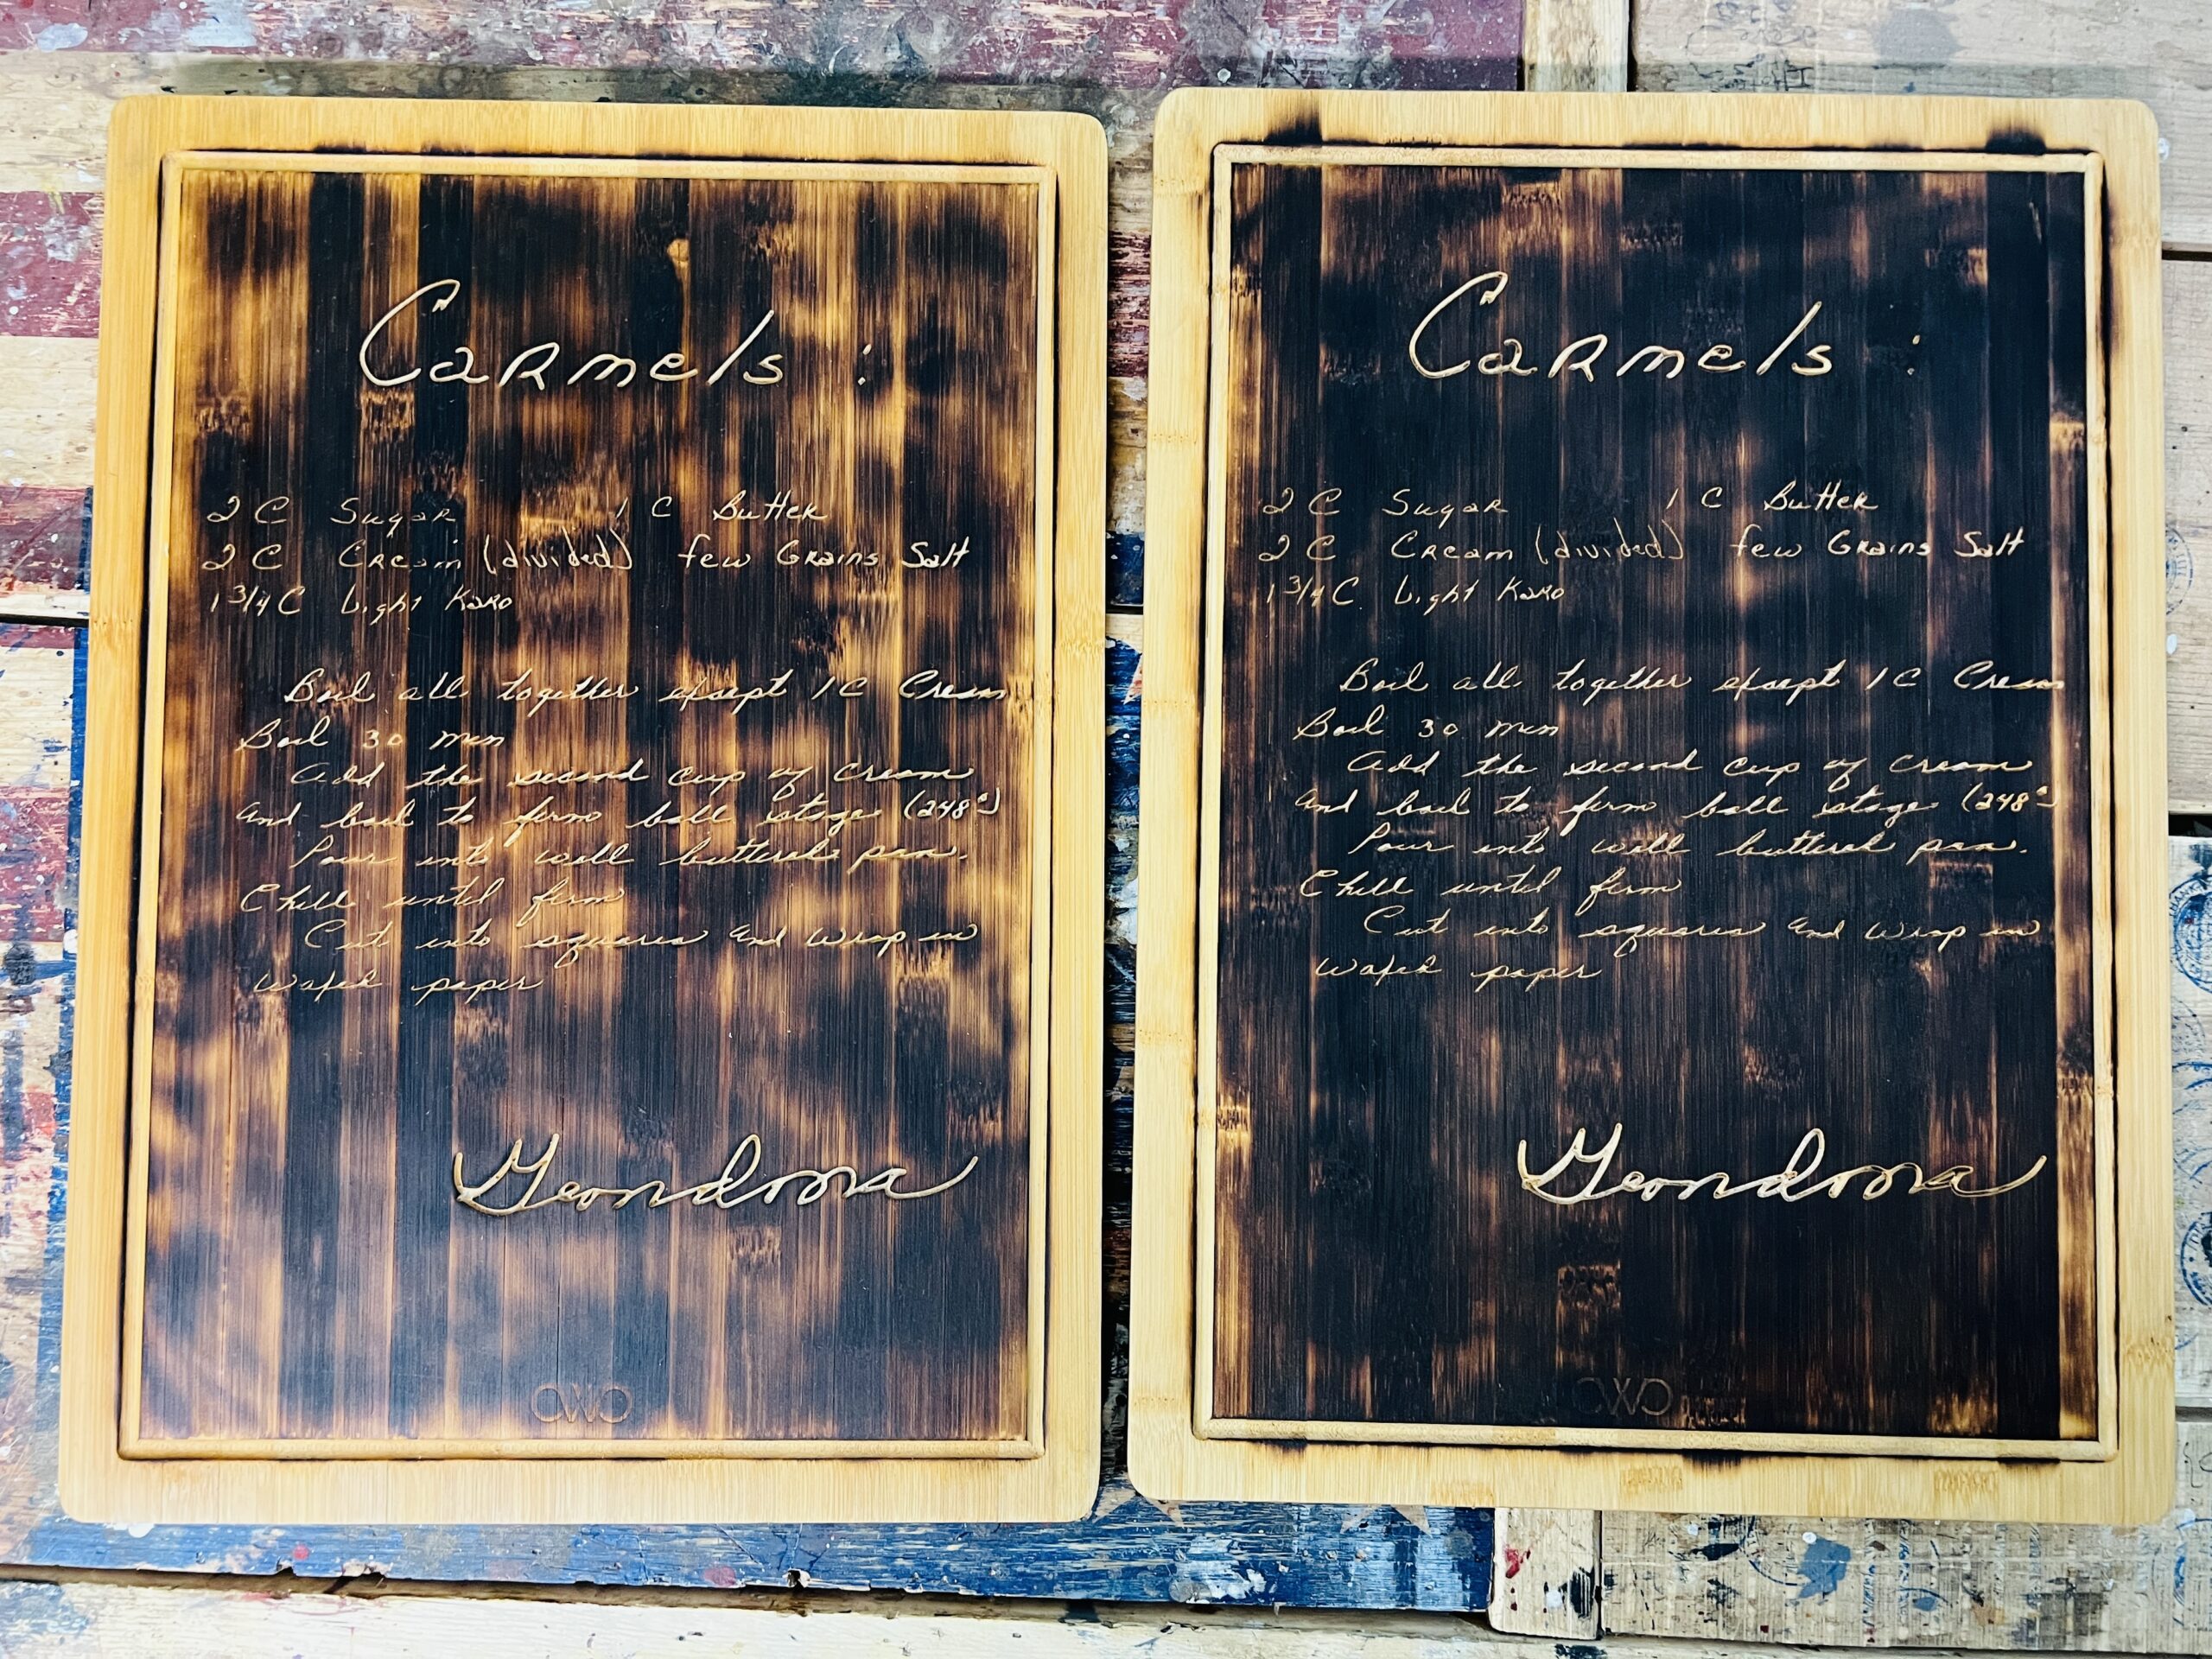 Carmels :
2 C Sugar 1 C Butter
2 C Cream (divided) few Grains Salt
1 3/4 C Light Karo
Boil all together except 1 C Cream
Boil 30 min
Add the second cup of cream
and boil to firm ball stage (248°)
Pour into well buttered pan.
Chill until firm
Cut into squares and wrap in
waxed paper
Grandma
OWO
Carmels :
2 C Sugar 1 C Butter
2 C Cream (divided) few Grains Salt
1 3/4 C Light Karo
Boil all together except 1 C Cream
Boil 30 min
Add the second cup of cream
and boil to firm ball stage (248°)
Pour into well buttered pan.
Chill until firm
Cut into squares and wrap in
waxed paper
Grandma
OWO